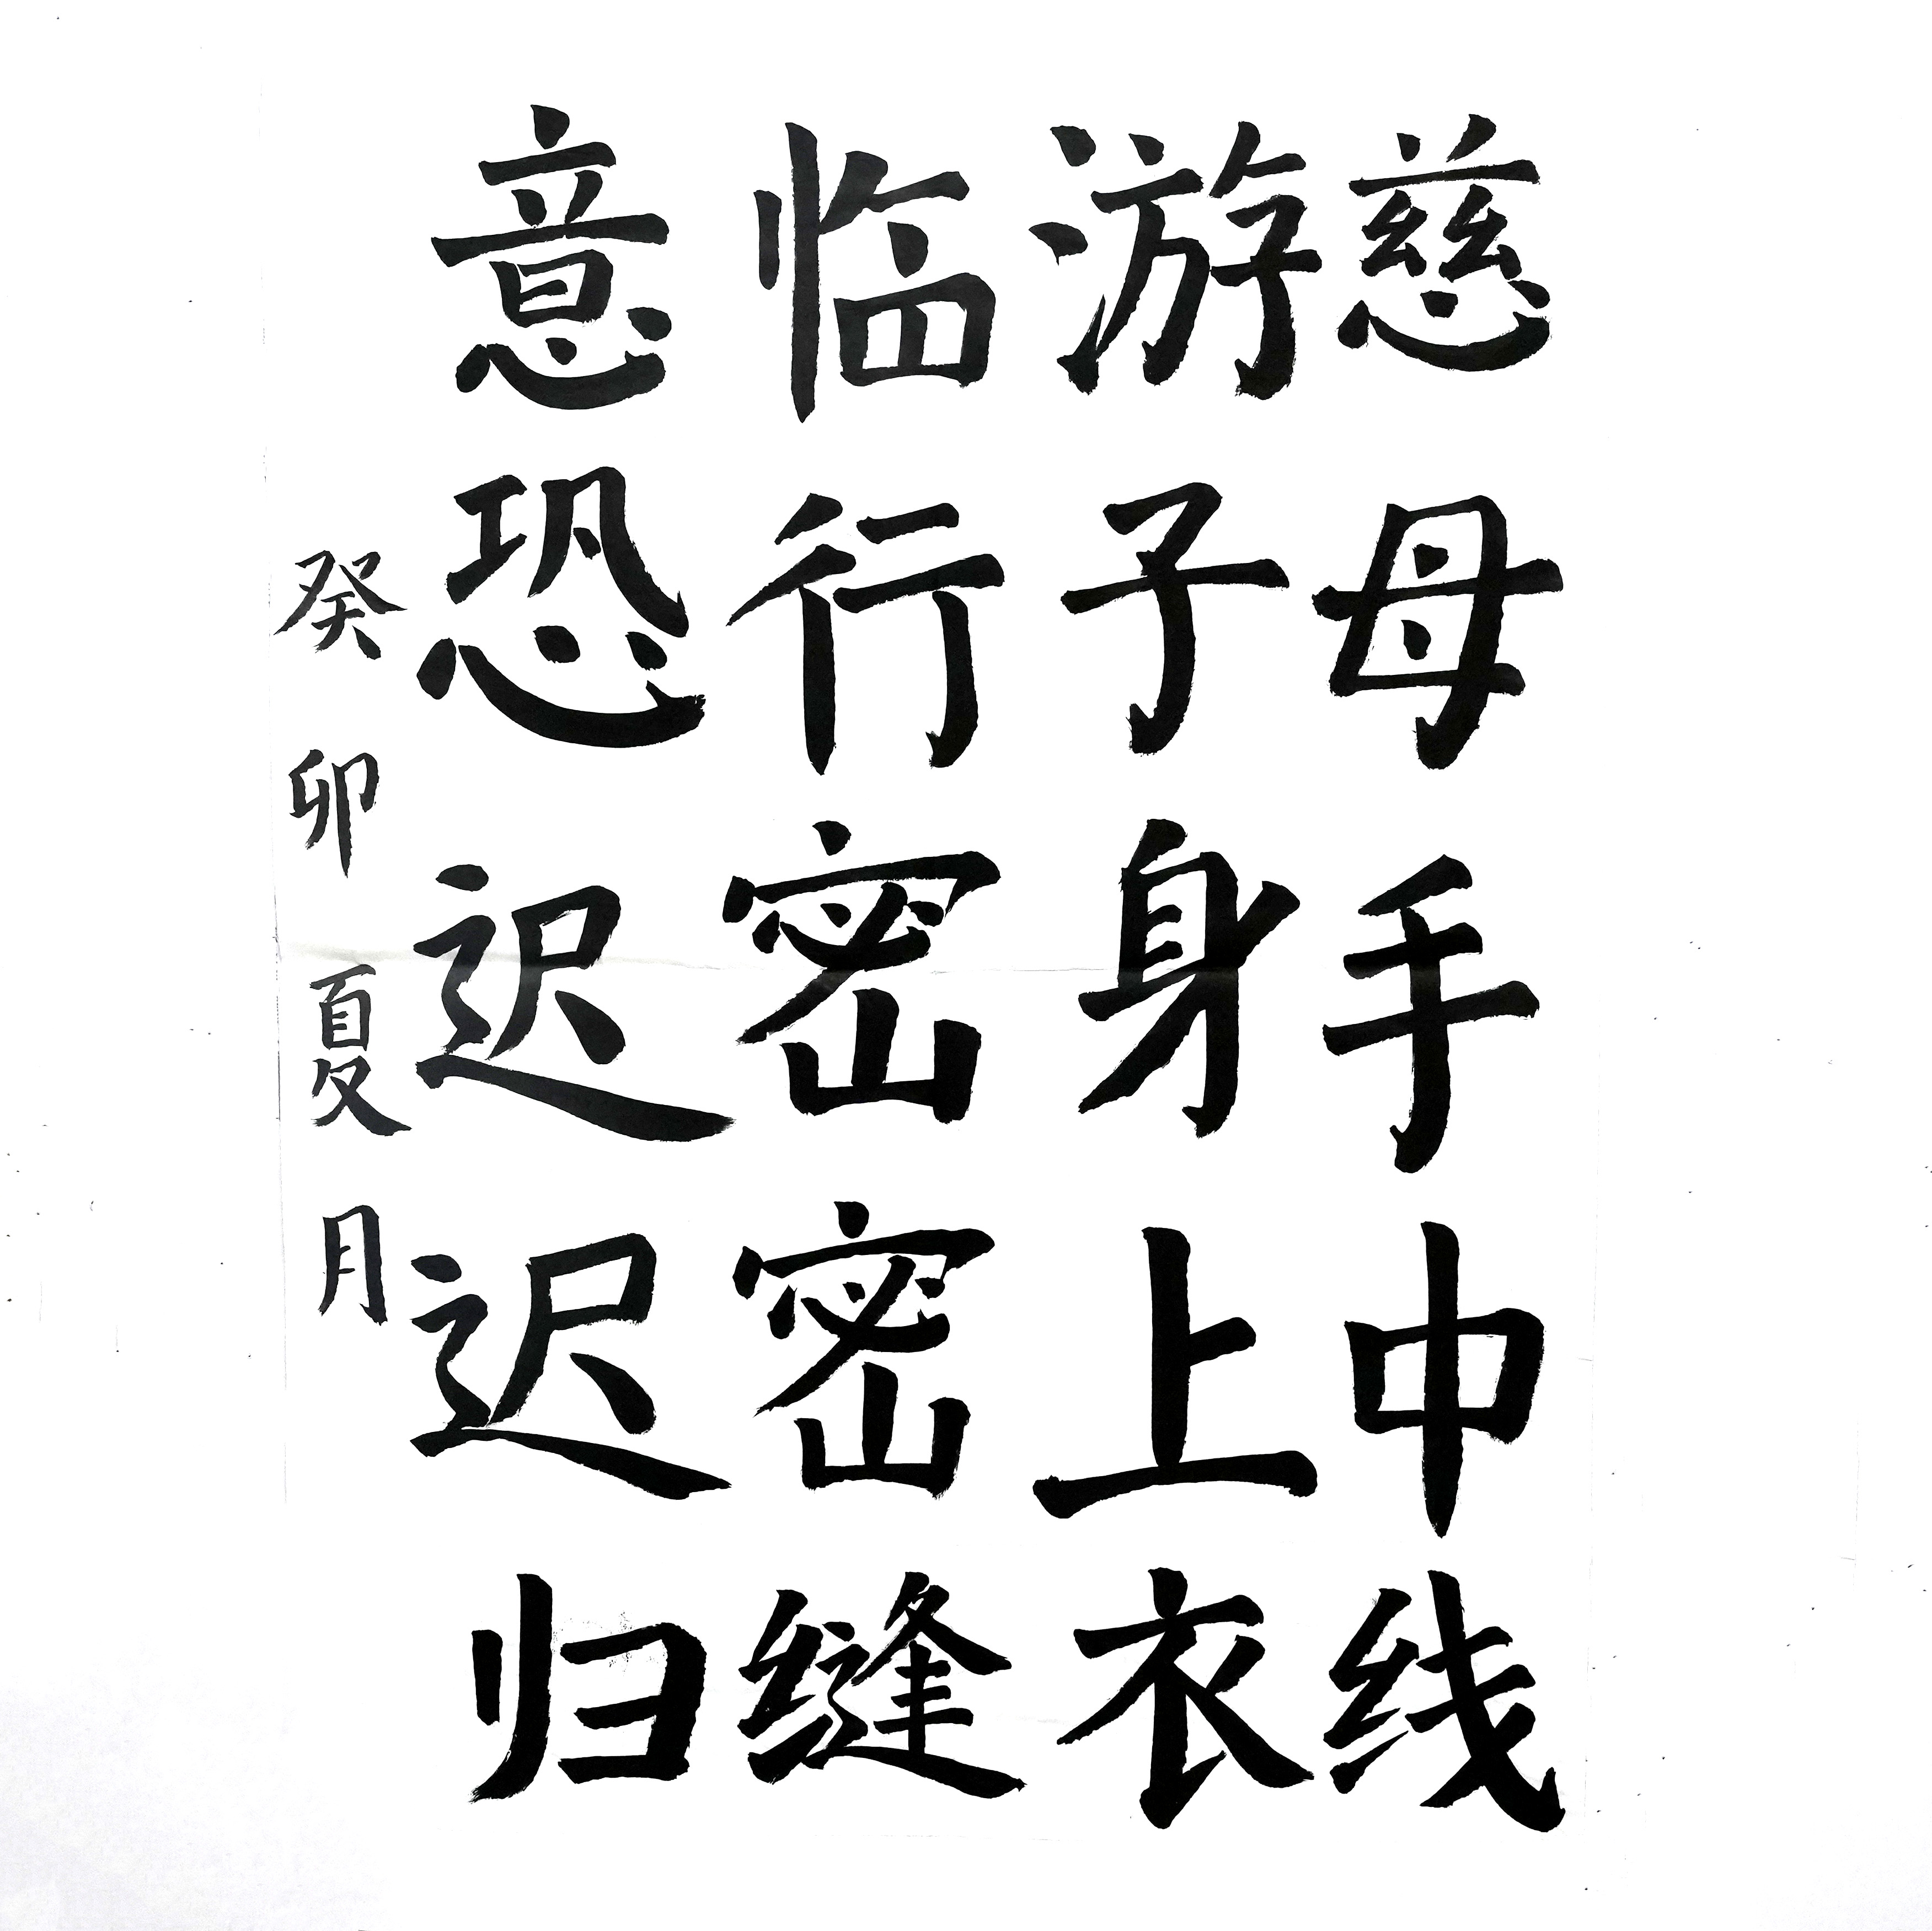 慈母手中线
游子身上衣
临行密密缝
意恐迟迟归
癸卯夏月